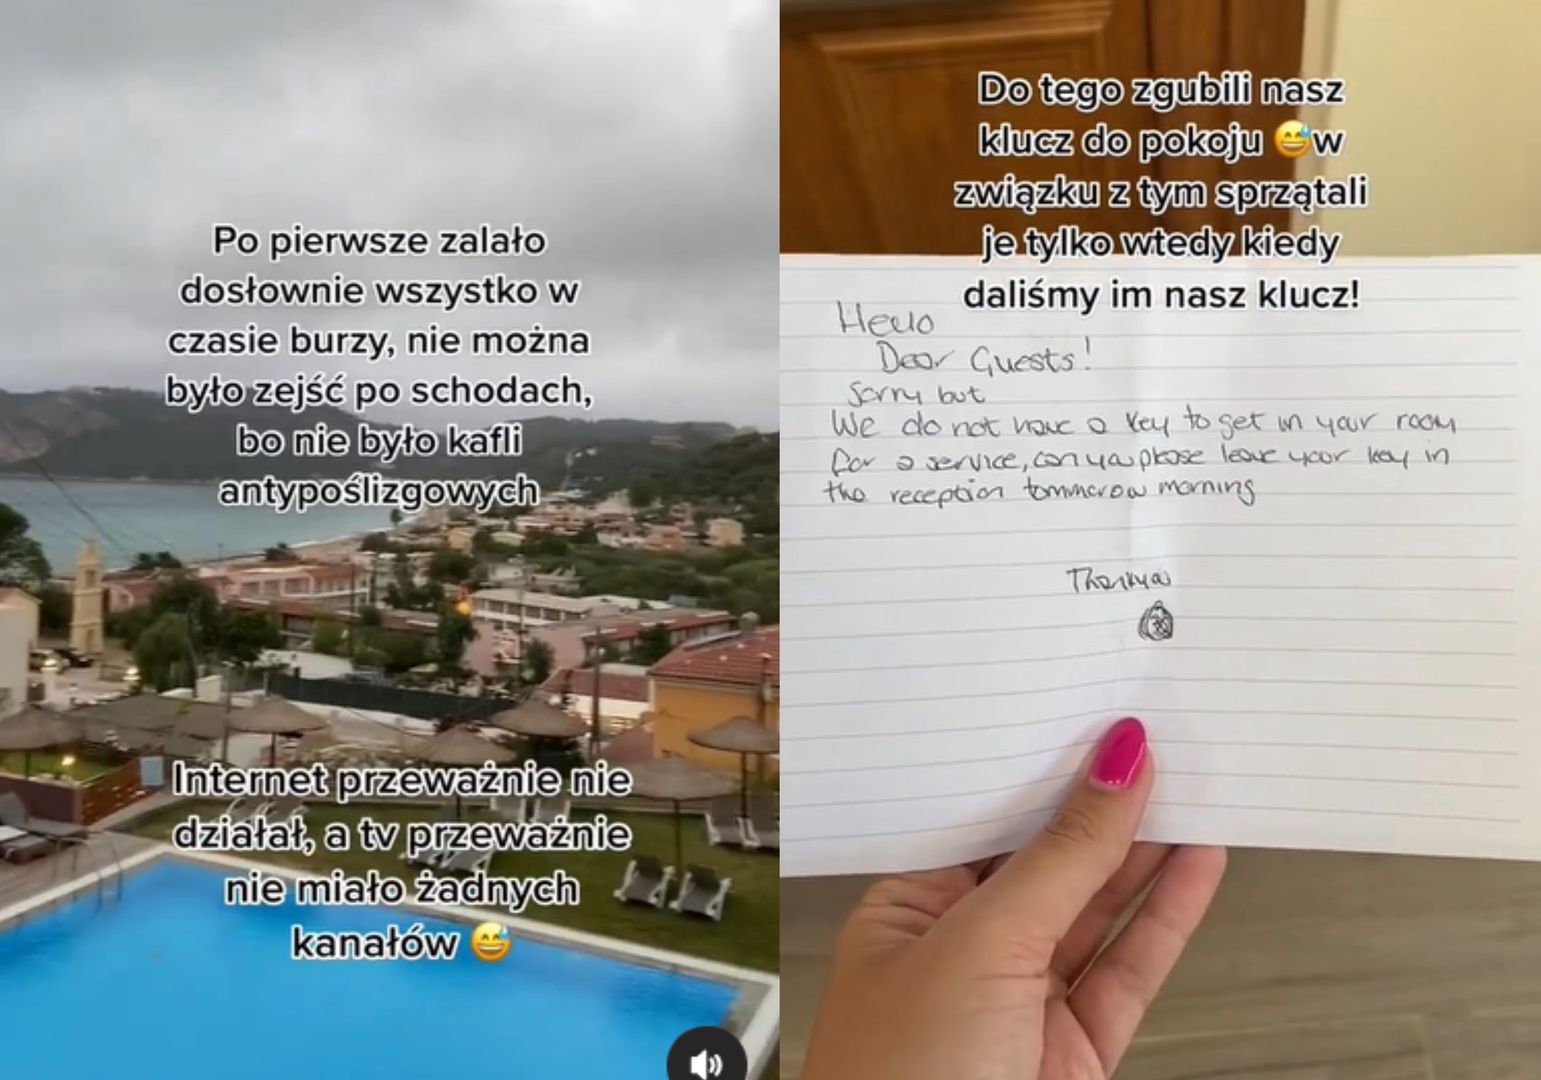 Po pierwsze zalało
dosłownie wszystko w
czasie burzy, nie można
było zejść po schodach,
bo nie było kafli
antypoślizgowych
Internet przeważnie nie
działał, a tv przeważnie
nie miało żadnych
kanałów 😅
Do tego zgubili nasz
klucz do pokoju 😅w
związku z tym sprzątali
je tylko wtedy kiedy
daliśmy im nasz klucz!
Hello
Dear Guests!
Sorry but
We do not have a key to get in your room
for a service, can you please leave your key in
the reception tommorow morning